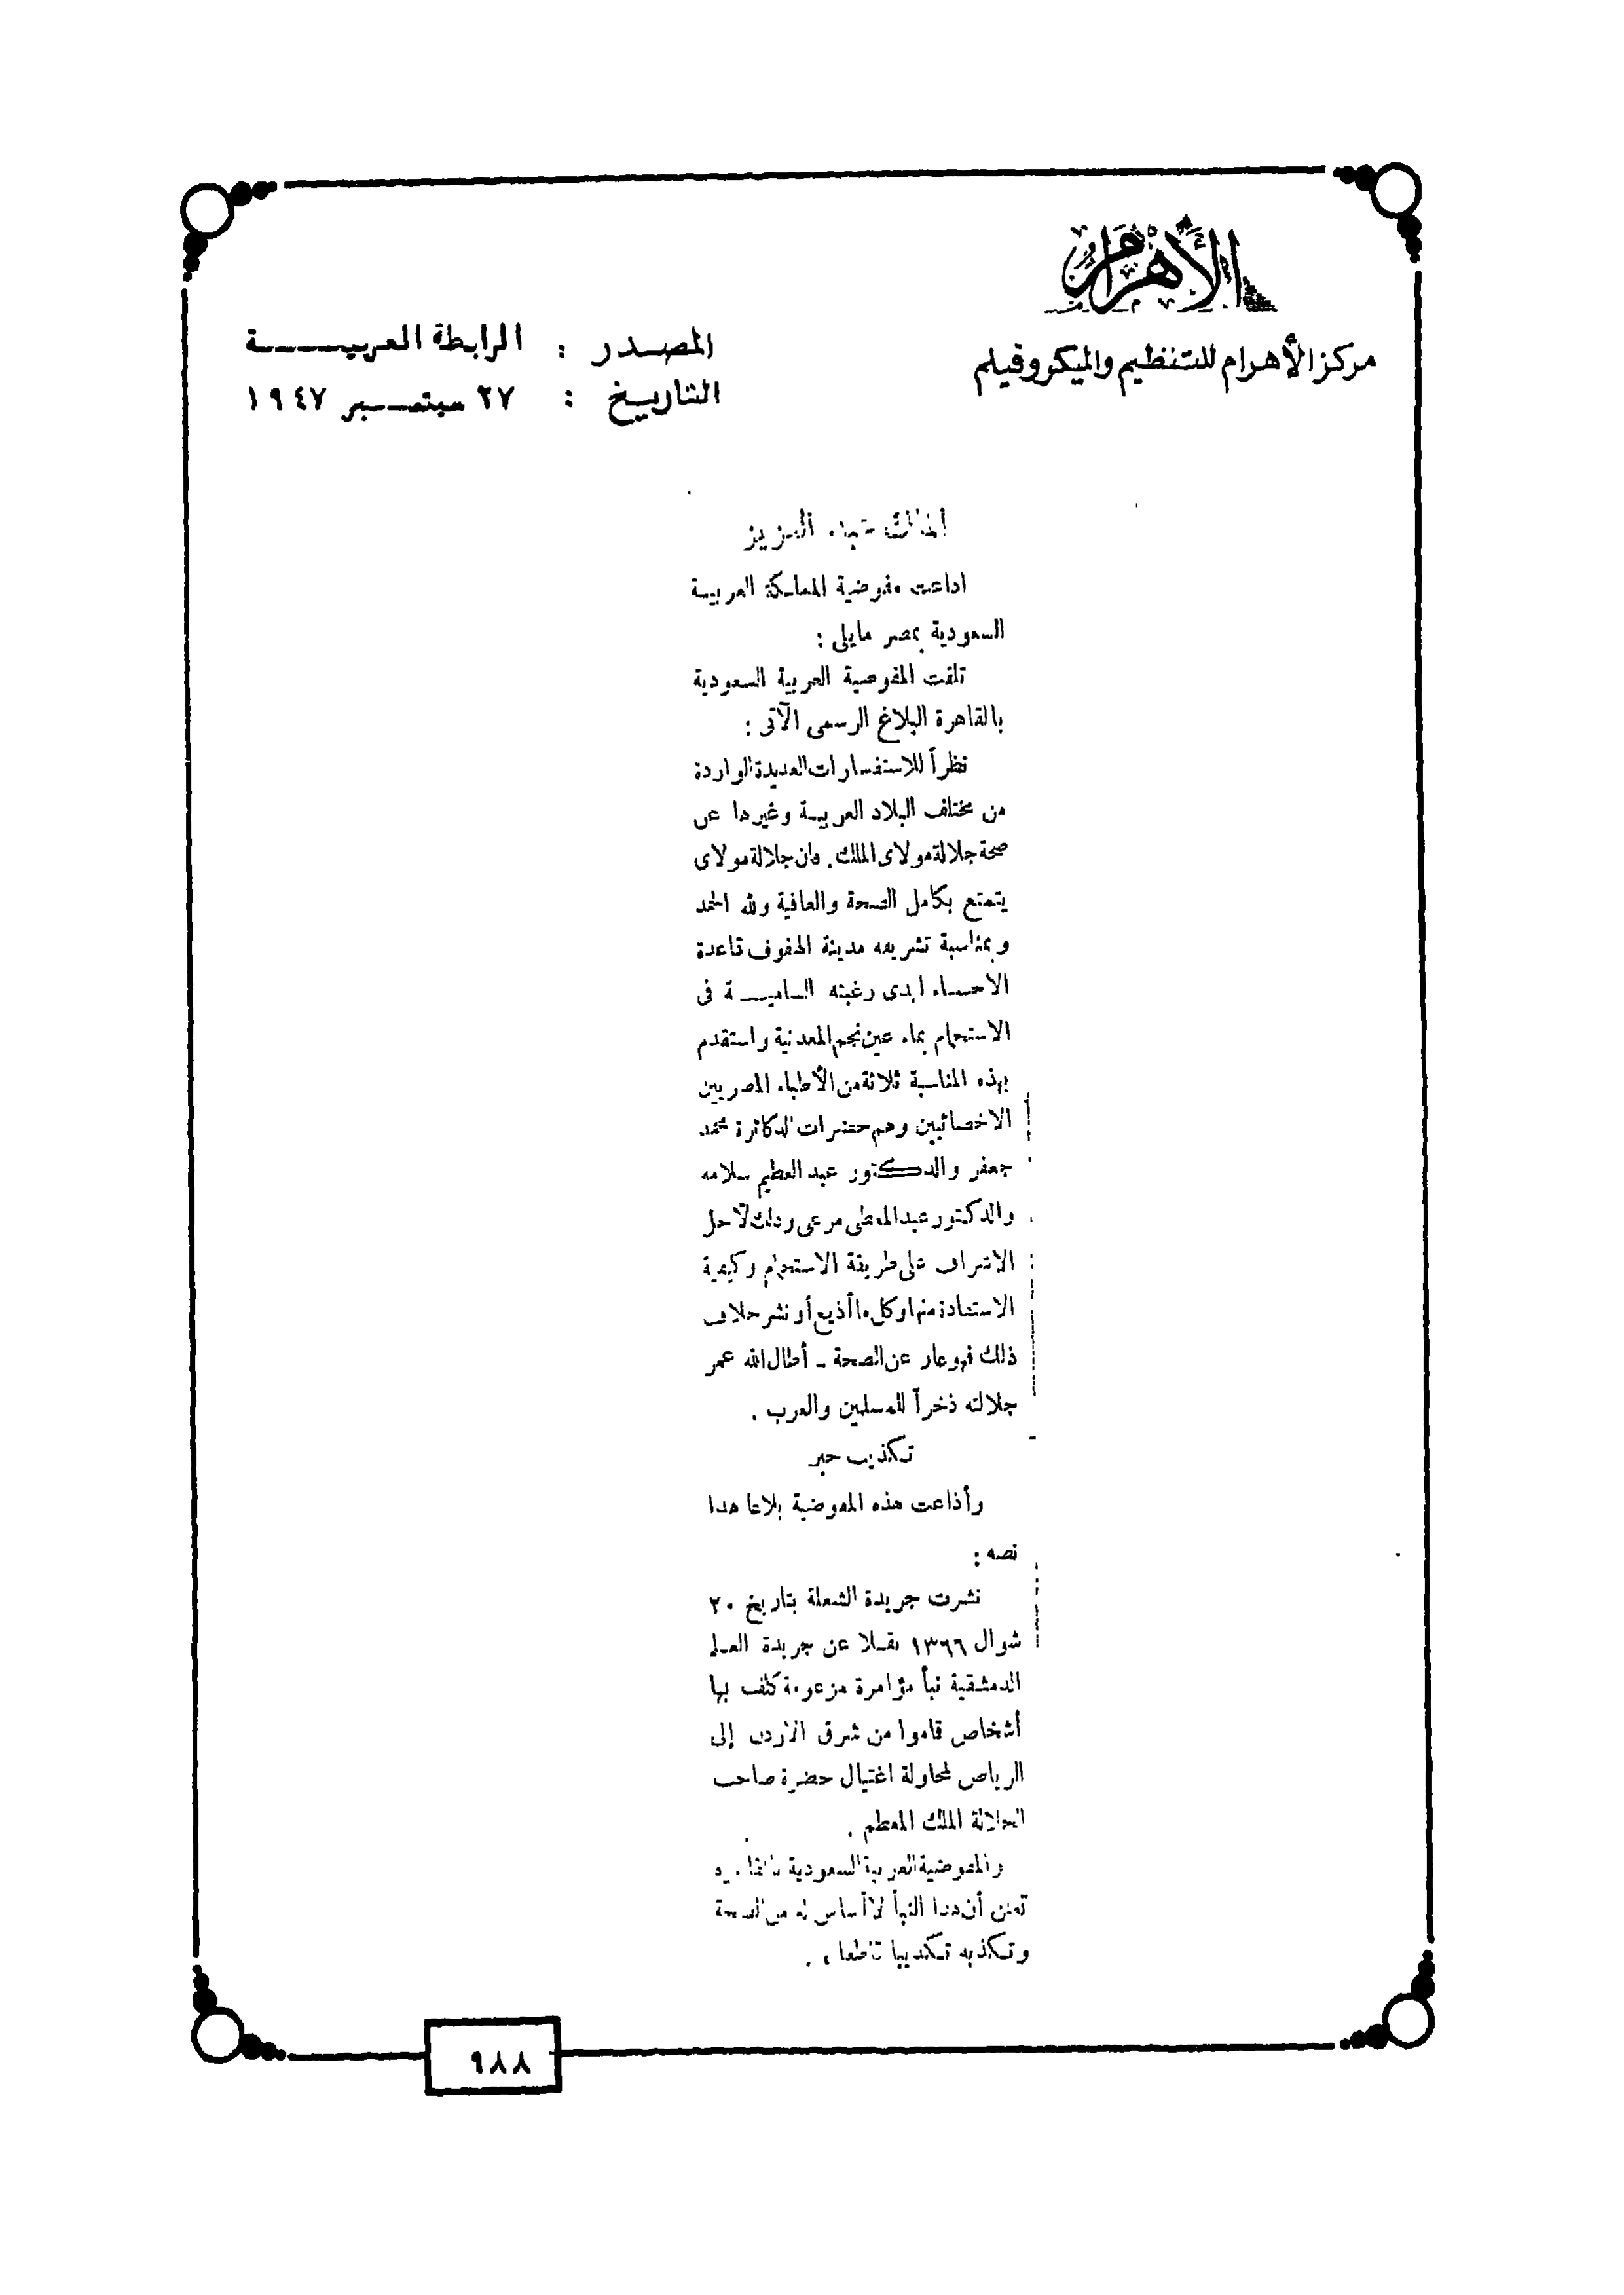 الأهرام
مركز الأهرام للتنظيم والميكروفيلم
المصدر : الرابطة العربية
التاريخ : ٢٧ سبتمبر ١٩٤٧
الملك عبد العزيز
اذاعت مفوضية المملكة العربية
السعودية بمصر مايلى :
تلقت المفوضية العربية السعودية
بالقاهرة البلاغ الرسمى الآتى :
نظراً للاستفسارات العديدة الواردة
من مختلف البلاد العربية وغيرها عن
صحة جلالة مولاى الملك. فان جلالة مولاى
يتمتع بكامل الصحة والعافية ولله الحمد
وبمناسبة تشريفه مدينة الهفوف قاعدة
الاحساء ابدى رغبته السامية فى
الاستحمام بماء عين نجم المعدنية واستقدم
بهذه المناسبة ثلاثة من الأطباء المصريين
الاخصائيين وهم حضرات الدكاترة محمد
جعفر والدكتور عبد العظيم سلامه
والدكتور عبد المعطى مرعى وذلك لأجل
الاشراف على طريقة الاستحمام وكيفية
الاستفادة منها وكل ما أذيع أو نشر خلاف
ذلك فهو عار عن الصحة ـ أطال الله عمر
جلالته ذخراً للمسلمين والعرب .
تكذيب خبر
وأذاعت هذه المفوضية بلاغا هذا
نصه :
نشرت جريدة الشعلة بتاريخ ٢٠
شوال ١٣٦٦ نقلا عن جريدة العلم
الدمشقية نبأ مؤامرة مزعومة كلف بها
أشخاص قاموا من شرق الاردن إلى
الرياض لمحاولة اغتيال حضرة صاحب
الجلالة الملك المعظم .
والمفوضية العربية السعودية بالقاهرة
تعلن أن هذا النبأ لا أساس له من الصحة
وتكذبه تكذيبا قاطعا ، .
٩٨٨